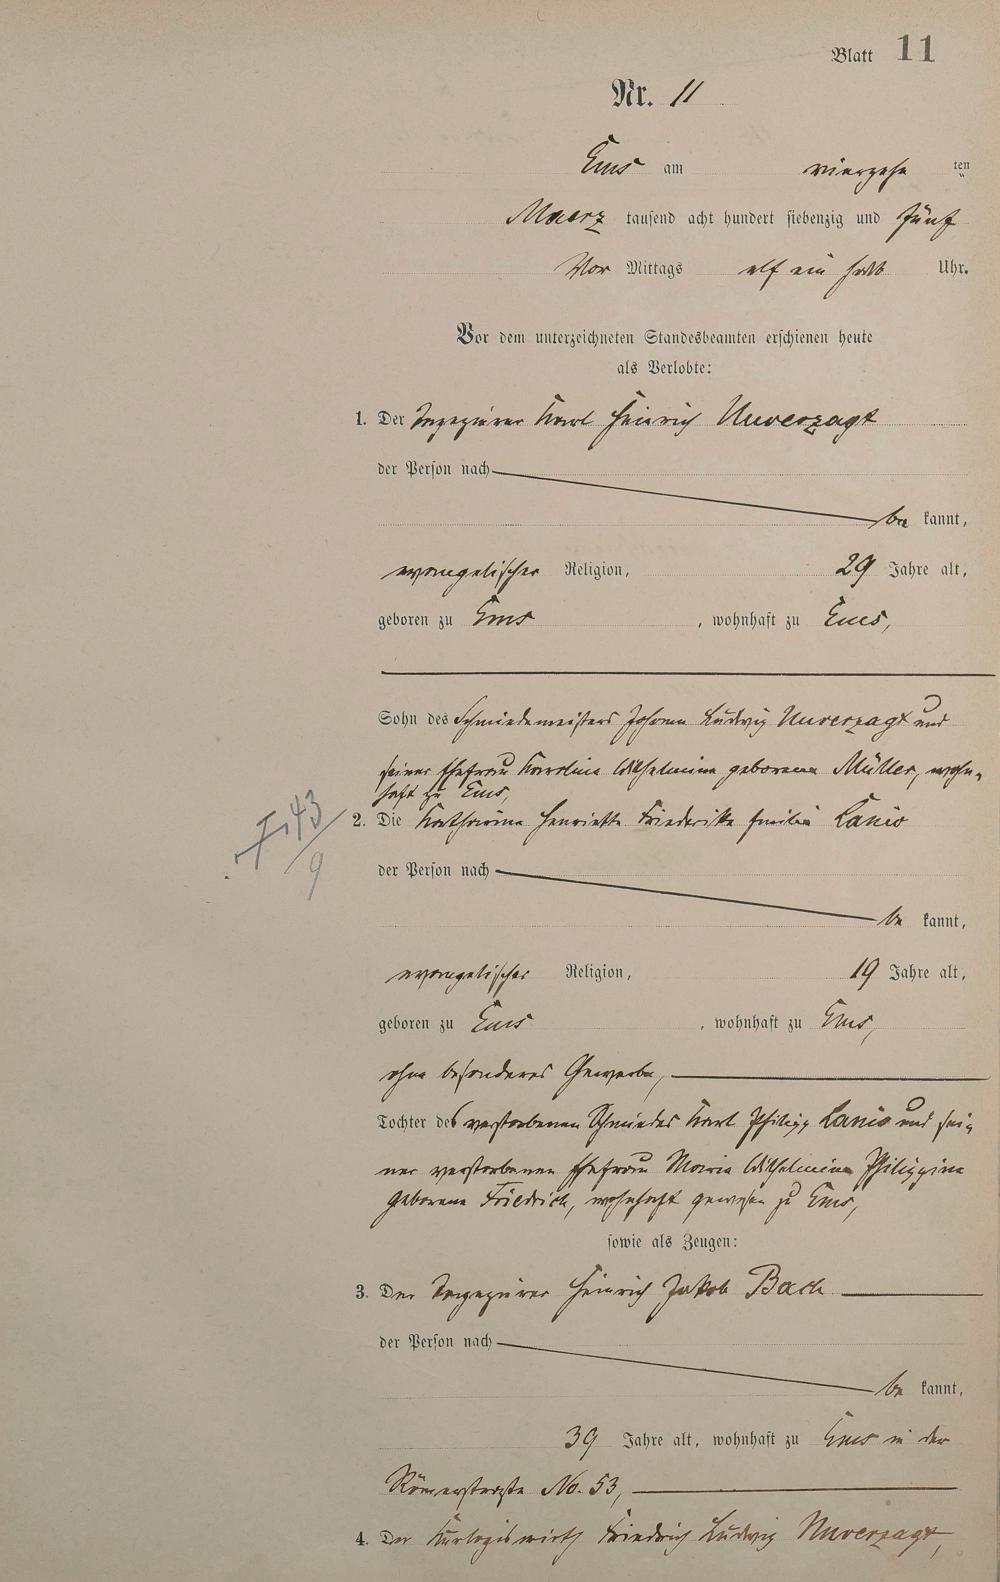 Blatt 11
Nr. 11
Ems am vierzehn ten
Maerz tausend acht hundert siebenzig und fünf
Vor Mittags elf ein halb Uhr.
Vor dem unterzeichneten Standesbeamten erschienen heute
als Verlobte:
1. Der Tapezierer Karl Heinrich Unverzagt
der Person nach
be kannt,
evangelischer Religion, 29 Jahre alt,
geboren zu Ems, wohnhaft zu Ems,
Sohn des Schmiedemeisters Johann Ludwig Unverzagt und
seiner Ehefrau Karoline Wilhelmine geborene Müller, wohn-
haft zu Ems,
2. Die Katharine Henriette Friederike Emilie Lanio
der Person nach
be kannt,
evangelischer Religion, 19 Jahre alt,
geboren zu Ems, wohnhaft zu Ems,
ohne besonderes Gewerbe,
Tochter des verstorbenen Schmiedes Karl Philipp Lanio und sei-
ner verstorbenen Ehefrau Maria Wilhelmine Philippine
geborene Friedrich, wohnhaft gewesen zu Ems,
sowie als Zeugen:
3. Der Tapezierer Heinrich Jakob Bach
der Person nach
be kannt,
39 Jahre alt, wohnhaft zu Ems in der
Römerstraße No. 53,
4. Der Kurlogiswirth Friedrich Ludwig Unverzagt,